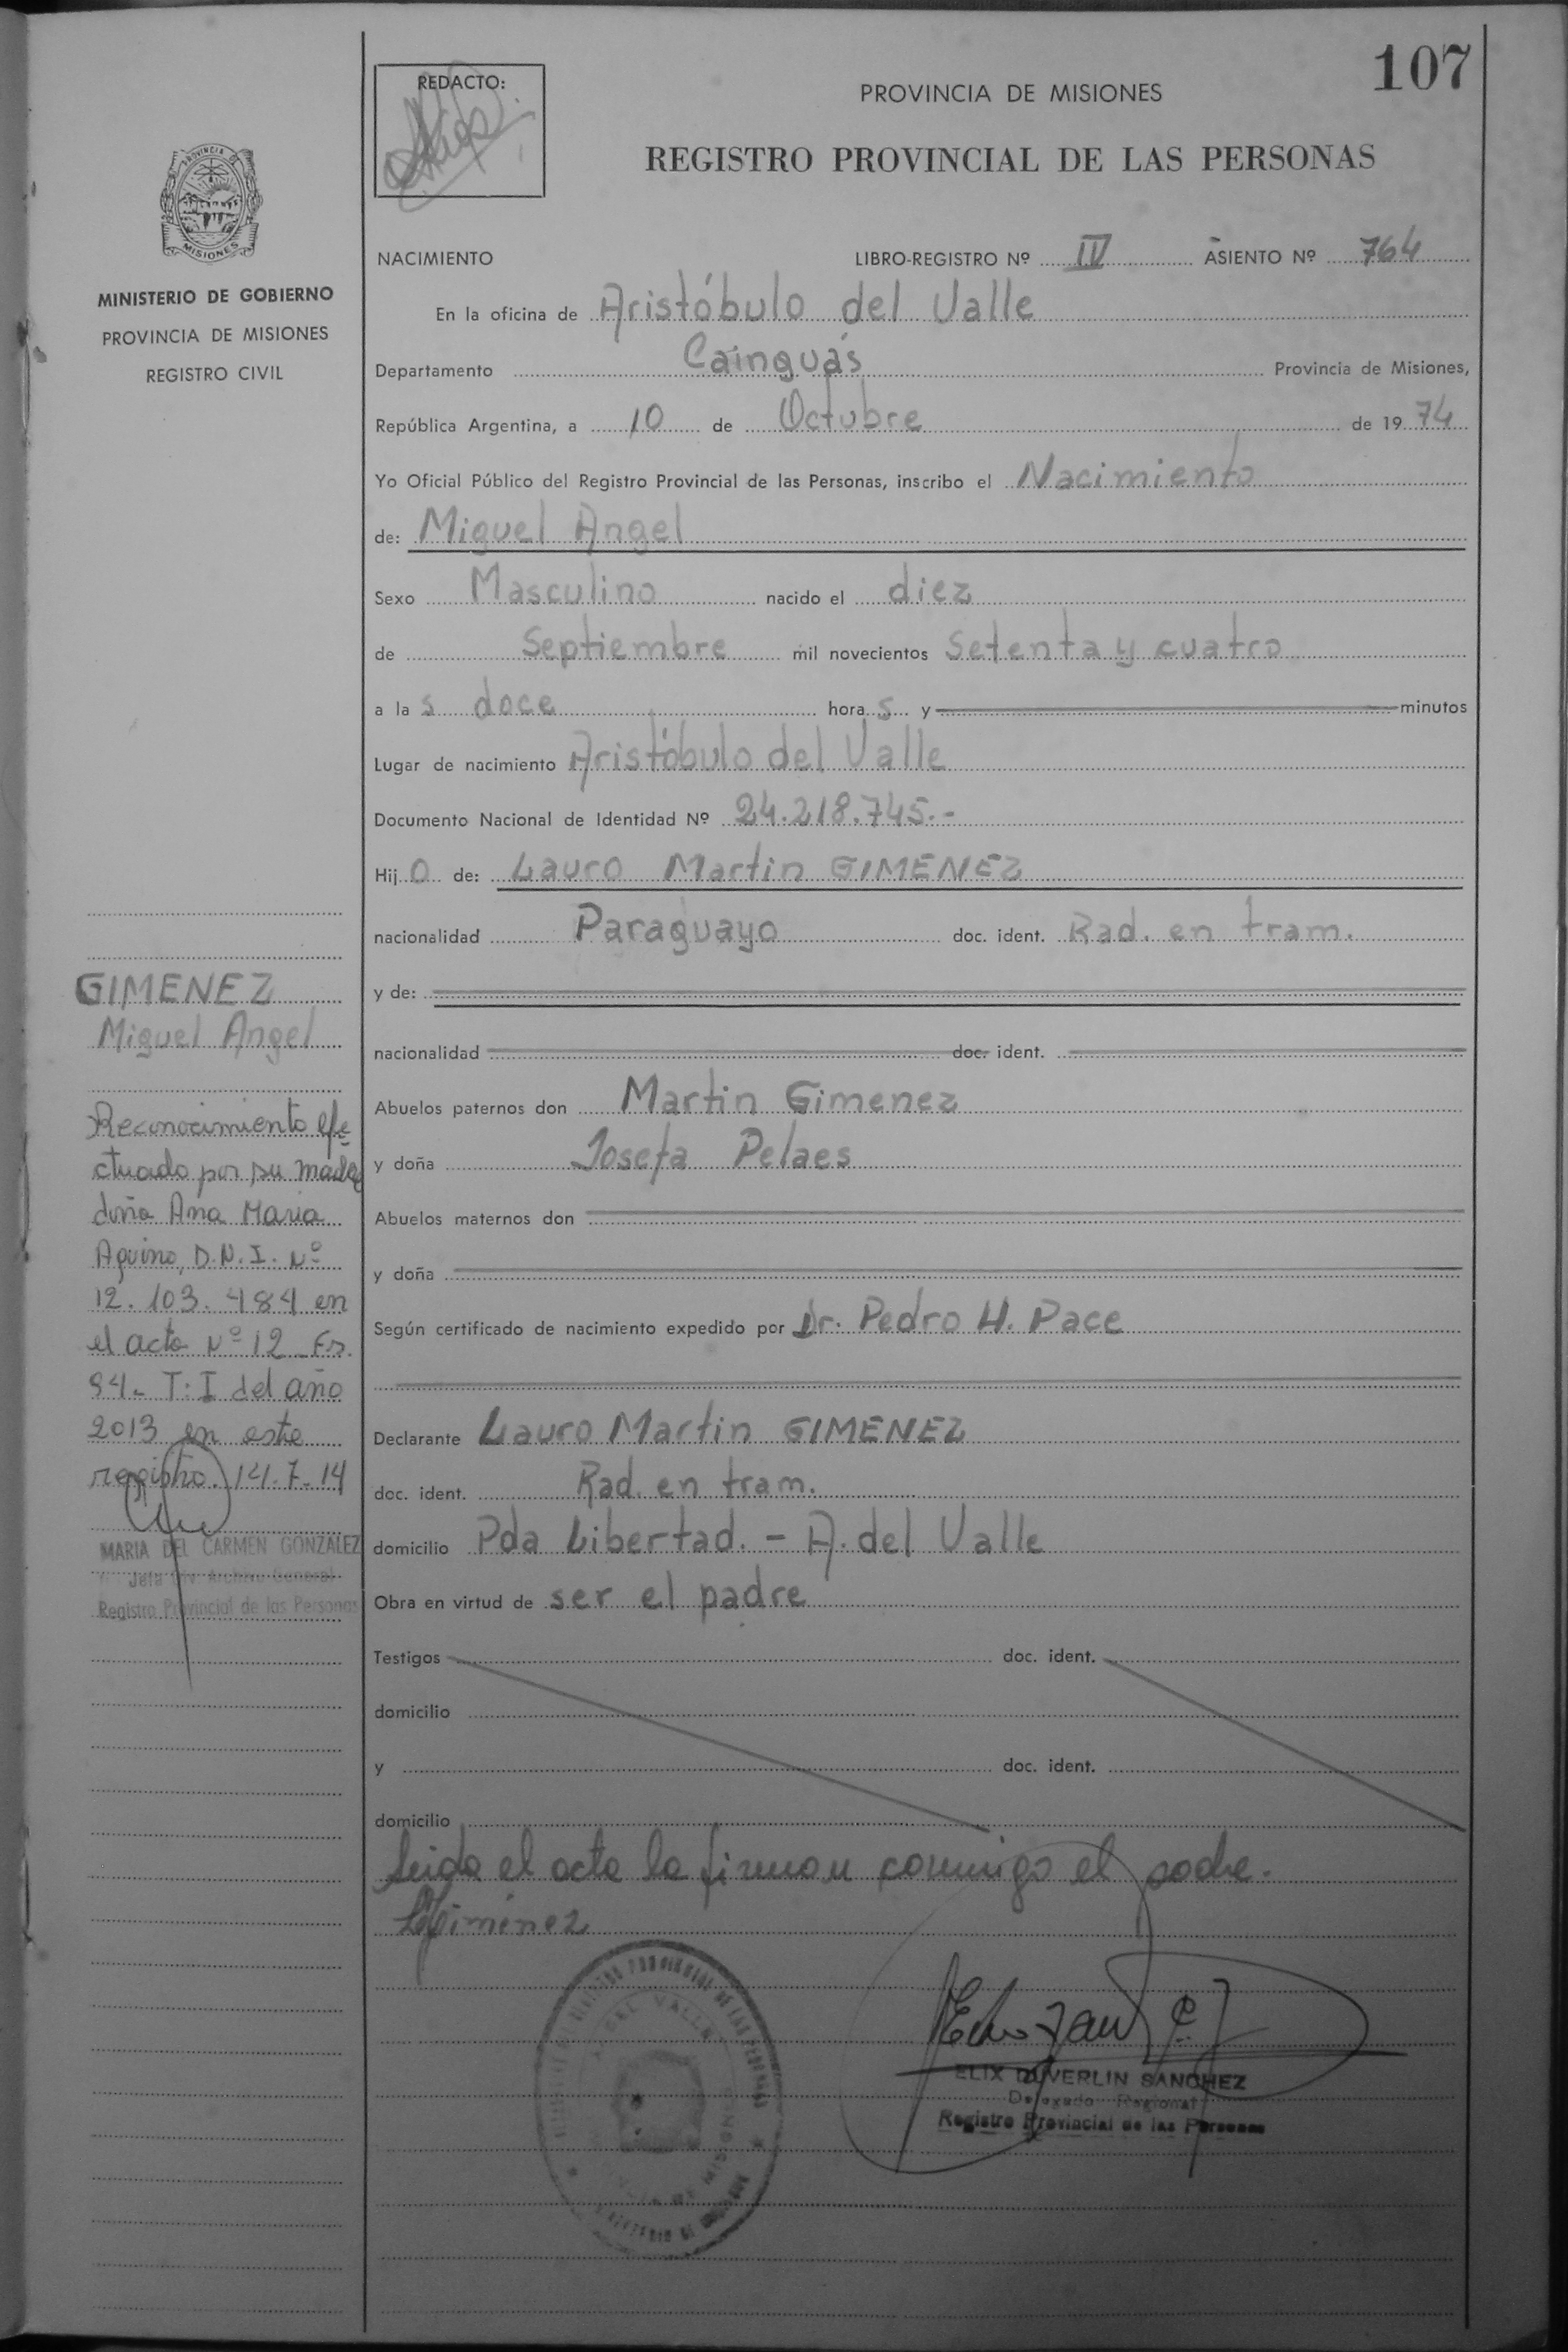 107
REDACTO:
PROVINCIA DE MISIONES
REGISTRO PROVINCIAL DE LAS PERSONAS
PROVINCIA DE
MISIONES
MINISTERIO DE GOBIERNO
PROVINCIA DE MISIONES
REGISTRO CIVIL
NACIMIENTO LIBRO-REGISTRO Nº IV ASIENTO Nº 764
En la oficina de Aristóbulo del Valle
Departamento Cainguás Provincia de Misiones,
República Argentina, a 10 de Octubre de 19 74
Yo Oficial Público del Registro Provincial de las Personas, inscribo el Nacimiento
de: Miguel Angel
Sexo Masculino nacido el diez
de Septiembre mil novecientos setenta y cuatro
a la s doce hora s y minutos
Lugar de nacimiento Aristóbulo del Valle
Documento Nacional de Identidad Nº 24.218.745.-
Hij o de: Lauro Martin GIMENEZ
nacionalidad Paraguayo doc. ident. Rad. en tram.
y de:
nacionalidad doc. ident.
Abuelos paternos don Martin Gimenez
y doña Josefa Pelaes
Abuelos maternos don
y doña
Según certificado de nacimiento expedido por Dr. Pedro H. Pace
Declarante Lauro Martin GIMENEZ
doc. ident. Rad. en tram.
domicilio Pda Libertad. - A. del Valle
Obra en virtud de ser el padre
Testigos doc. ident.
domicilio
y doc. ident.
domicilio
Leida el acta la firman conmigo el padre.
Gimenez
ELIX DUVERLIN SANCHEZ
Delegado Regional
Registro Provincial de las Personas
GIMENEZ
Miguel Angel
Reconocimiento efe-
ctuado por su madre
doña Ana Maria
Aquino, D.N.I. Nº
12.103.484 en
el acta Nº 12 Fs.
94- T: I del año
2013 en este
registro. 14.7.14
MARIA DEL CARMEN GONZALEZ
Jefa Div. Archivo General
Registro Provincial de las Personas